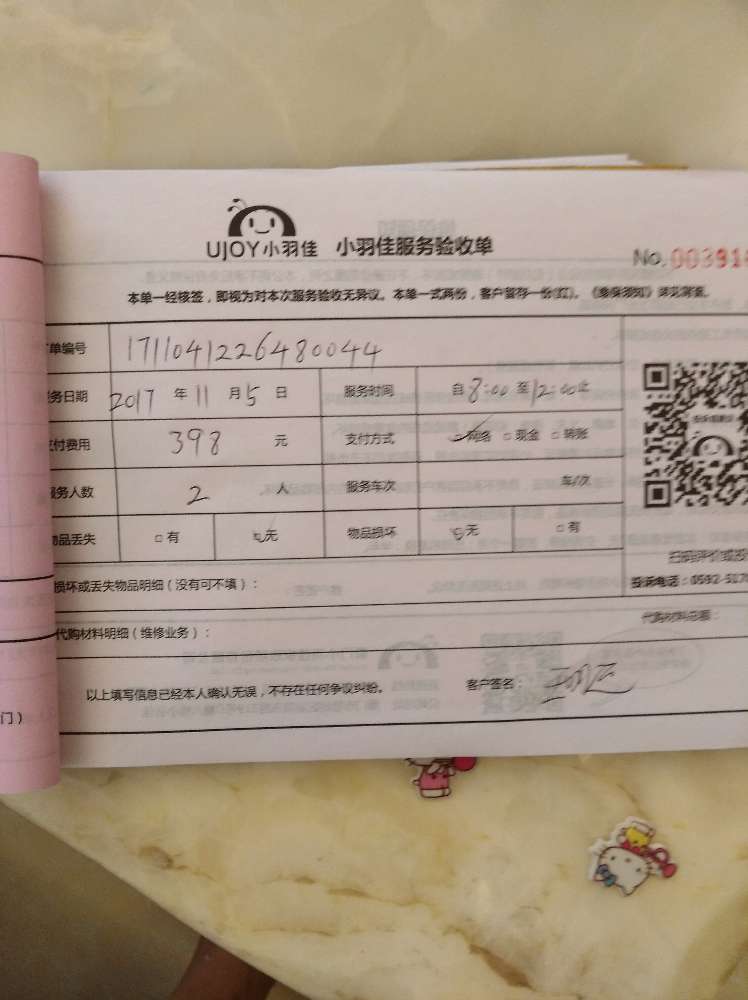 UJOY小羽佳 小羽佳服务验收单
No. 003916
本单一经核签，即视为对本次服务验收无异议。本单一式两份，客户留存一份(红)。《维保须知》详见背查。
单编号 1711041226480044
务日期 2017 年 11 月 5 日 服务时间 自 8:00 至 12:00 止
付费用 398 元 支付方式 ☑网络 □现金 □转账
服务人数 2 人 服务车次 车/次
物品丢失 □有 ☑无 物品损坏 ☑无 □有
扫码评价或投
投诉电话：0592-5170
损坏或丢失物品明细（没有可不填）：
代购材料总额：
代购材料明细（维修业务）：
以上填写信息已经本人确认无误，不存在任何争议纠纷。 客户签名：
门）